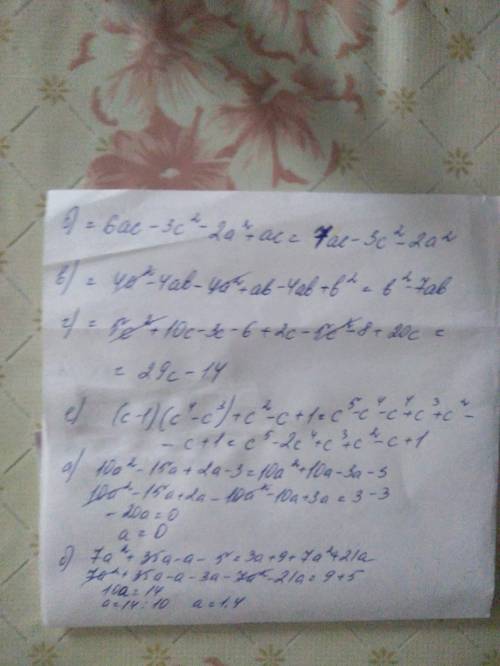 б) = 6ac - 3c² - 2a² + ac = 7ac - 3c² - 2a²
в) = 4a² - 4ab - 4a² + ab - 4ab + b² = b² - 7ab
г) = 5c² + 10c - 3c - 6 + 2c - 5c² - 8 + 20c =
= 29c - 14
е) (c-1)(c⁴-c³)+c²-c+1=c⁵-c⁴-c⁴+c³+c²-
-c+1=c⁵-2c⁴+c³+c²-c+1
а) 10a²-15a+2a-3=10a²+10a-3a-3
10a²-15a+2a-10a²-10a+3a=3-3
-20a=0
a=0
б) 7a²+35a-a-5=3a+9+7a²+21a
7a²+35a-a-3a-7a²-21a=9+5
10a=14
a=14:10 a=1,4